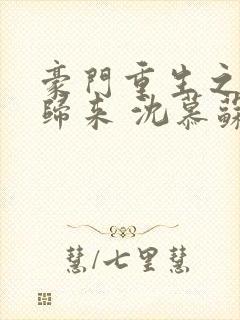 豪門重生之
歸來 沈慕蘇
慧/七里慧